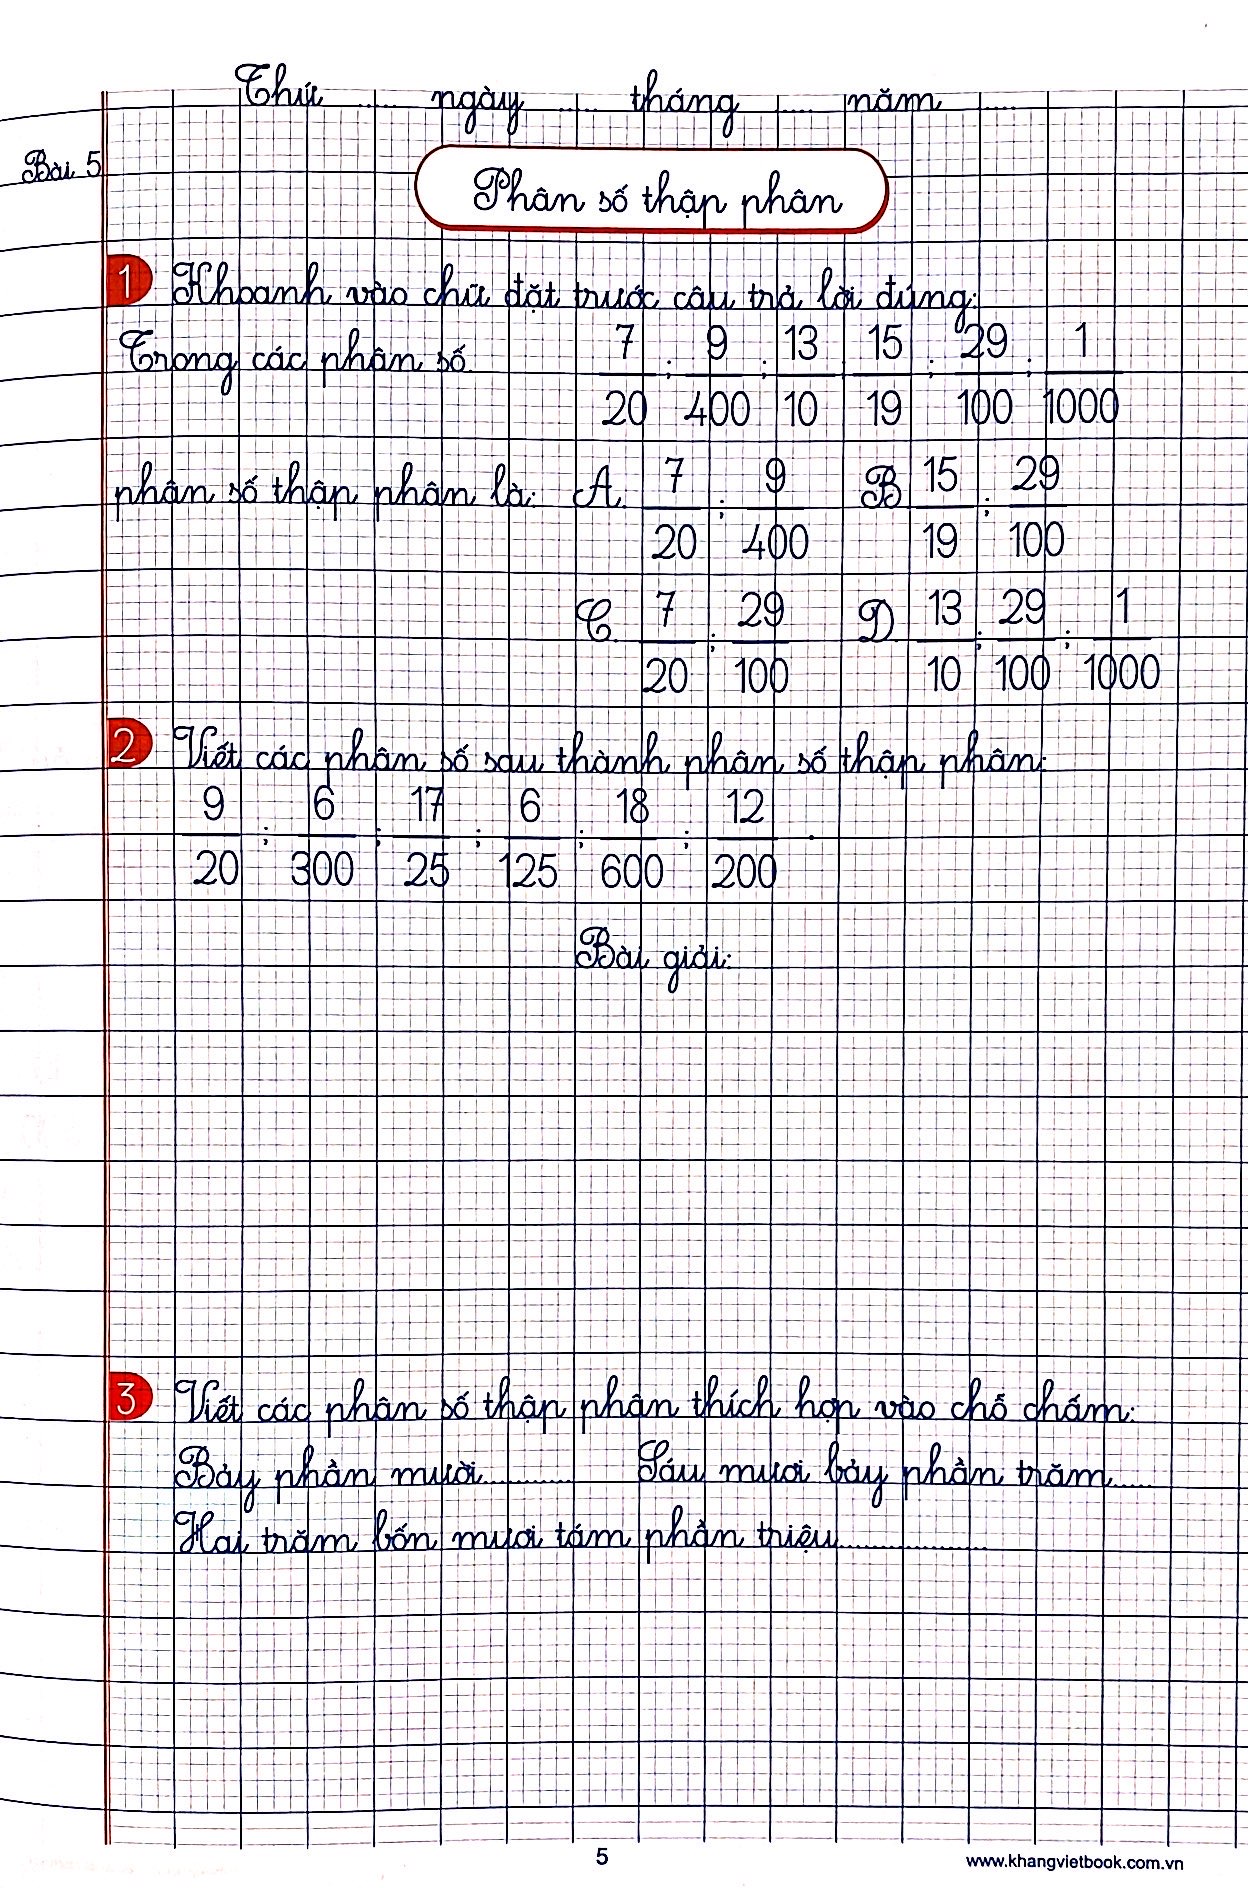 Thứ ...... ngày ...... tháng ...... năm ......
Bài 5
Phân số thập phân
1 Khoanh vào chữ đặt trước câu trả lời đúng:
Trong các phân số 7/20 ; 9/400 ; 13/10 ; 15/19 ; 29/100 ; 1/1000
phân số thập phân là: A. 7/20 ; 9/400 B. 15/19 ; 29/100
C. 7/20 ; 29/100 D. 13/10 ; 29/100 ; 1/1000
2 Viết các phân số sau thành phân số thập phân:
9/20 ; 6/300 ; 17/25 ; 6/125 ; 18/600 ; 12/200 .
Bài giải:
3 Viết các phân số thập phân thích hợp vào chỗ chấm:
Bảy phần mười............ Sáu mươi bảy phần trăm......
Hai trăm bốn mươi tám phần triệu....................
5
www.khangvietbook.com.vn